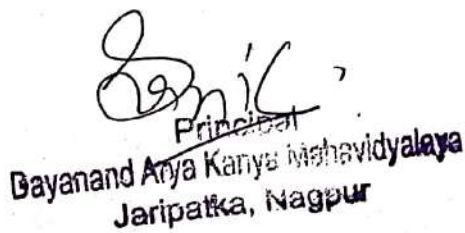 Principal
Dayanand Arya Kanya Mahavidyalaya
Jaripatka, Nagpur